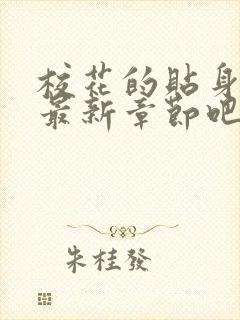 校花的貼身
最新章節吧
朱桂發